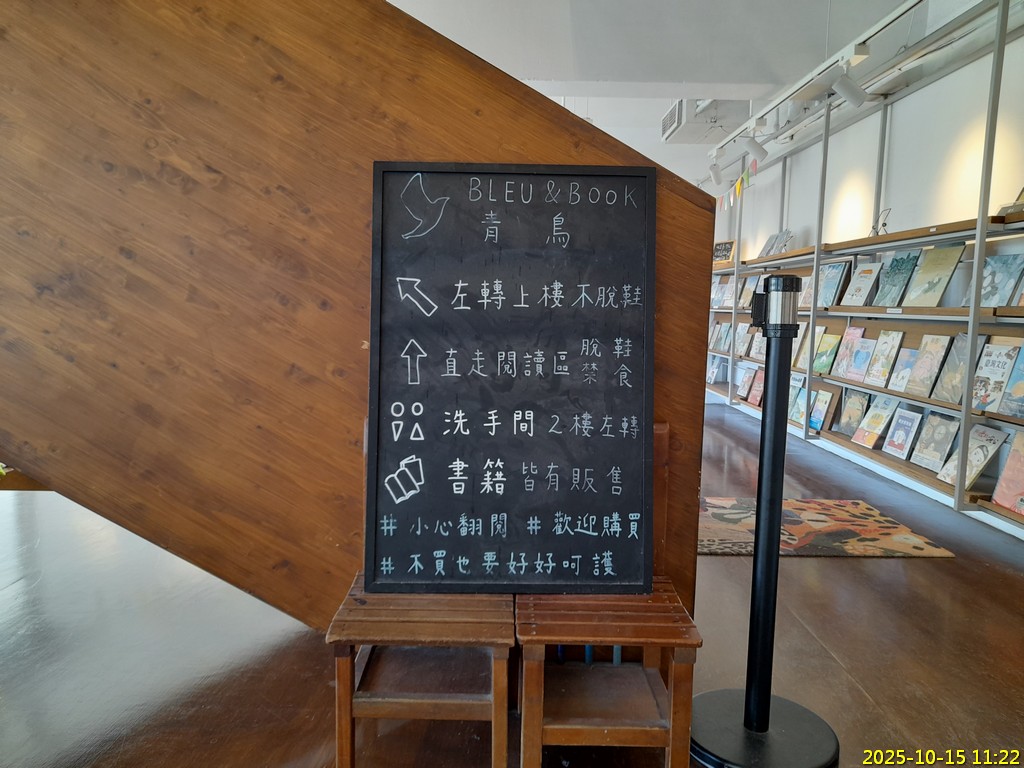 BLEU & BOOK
青鳥
左轉上樓不脫鞋
直走閱讀區 脫鞋 禁食
洗手間 2樓左轉
書籍 皆有販售
# 小心翻閱 # 歡迎購買
# 不買也要好好呵護
2025-10-15 11:22